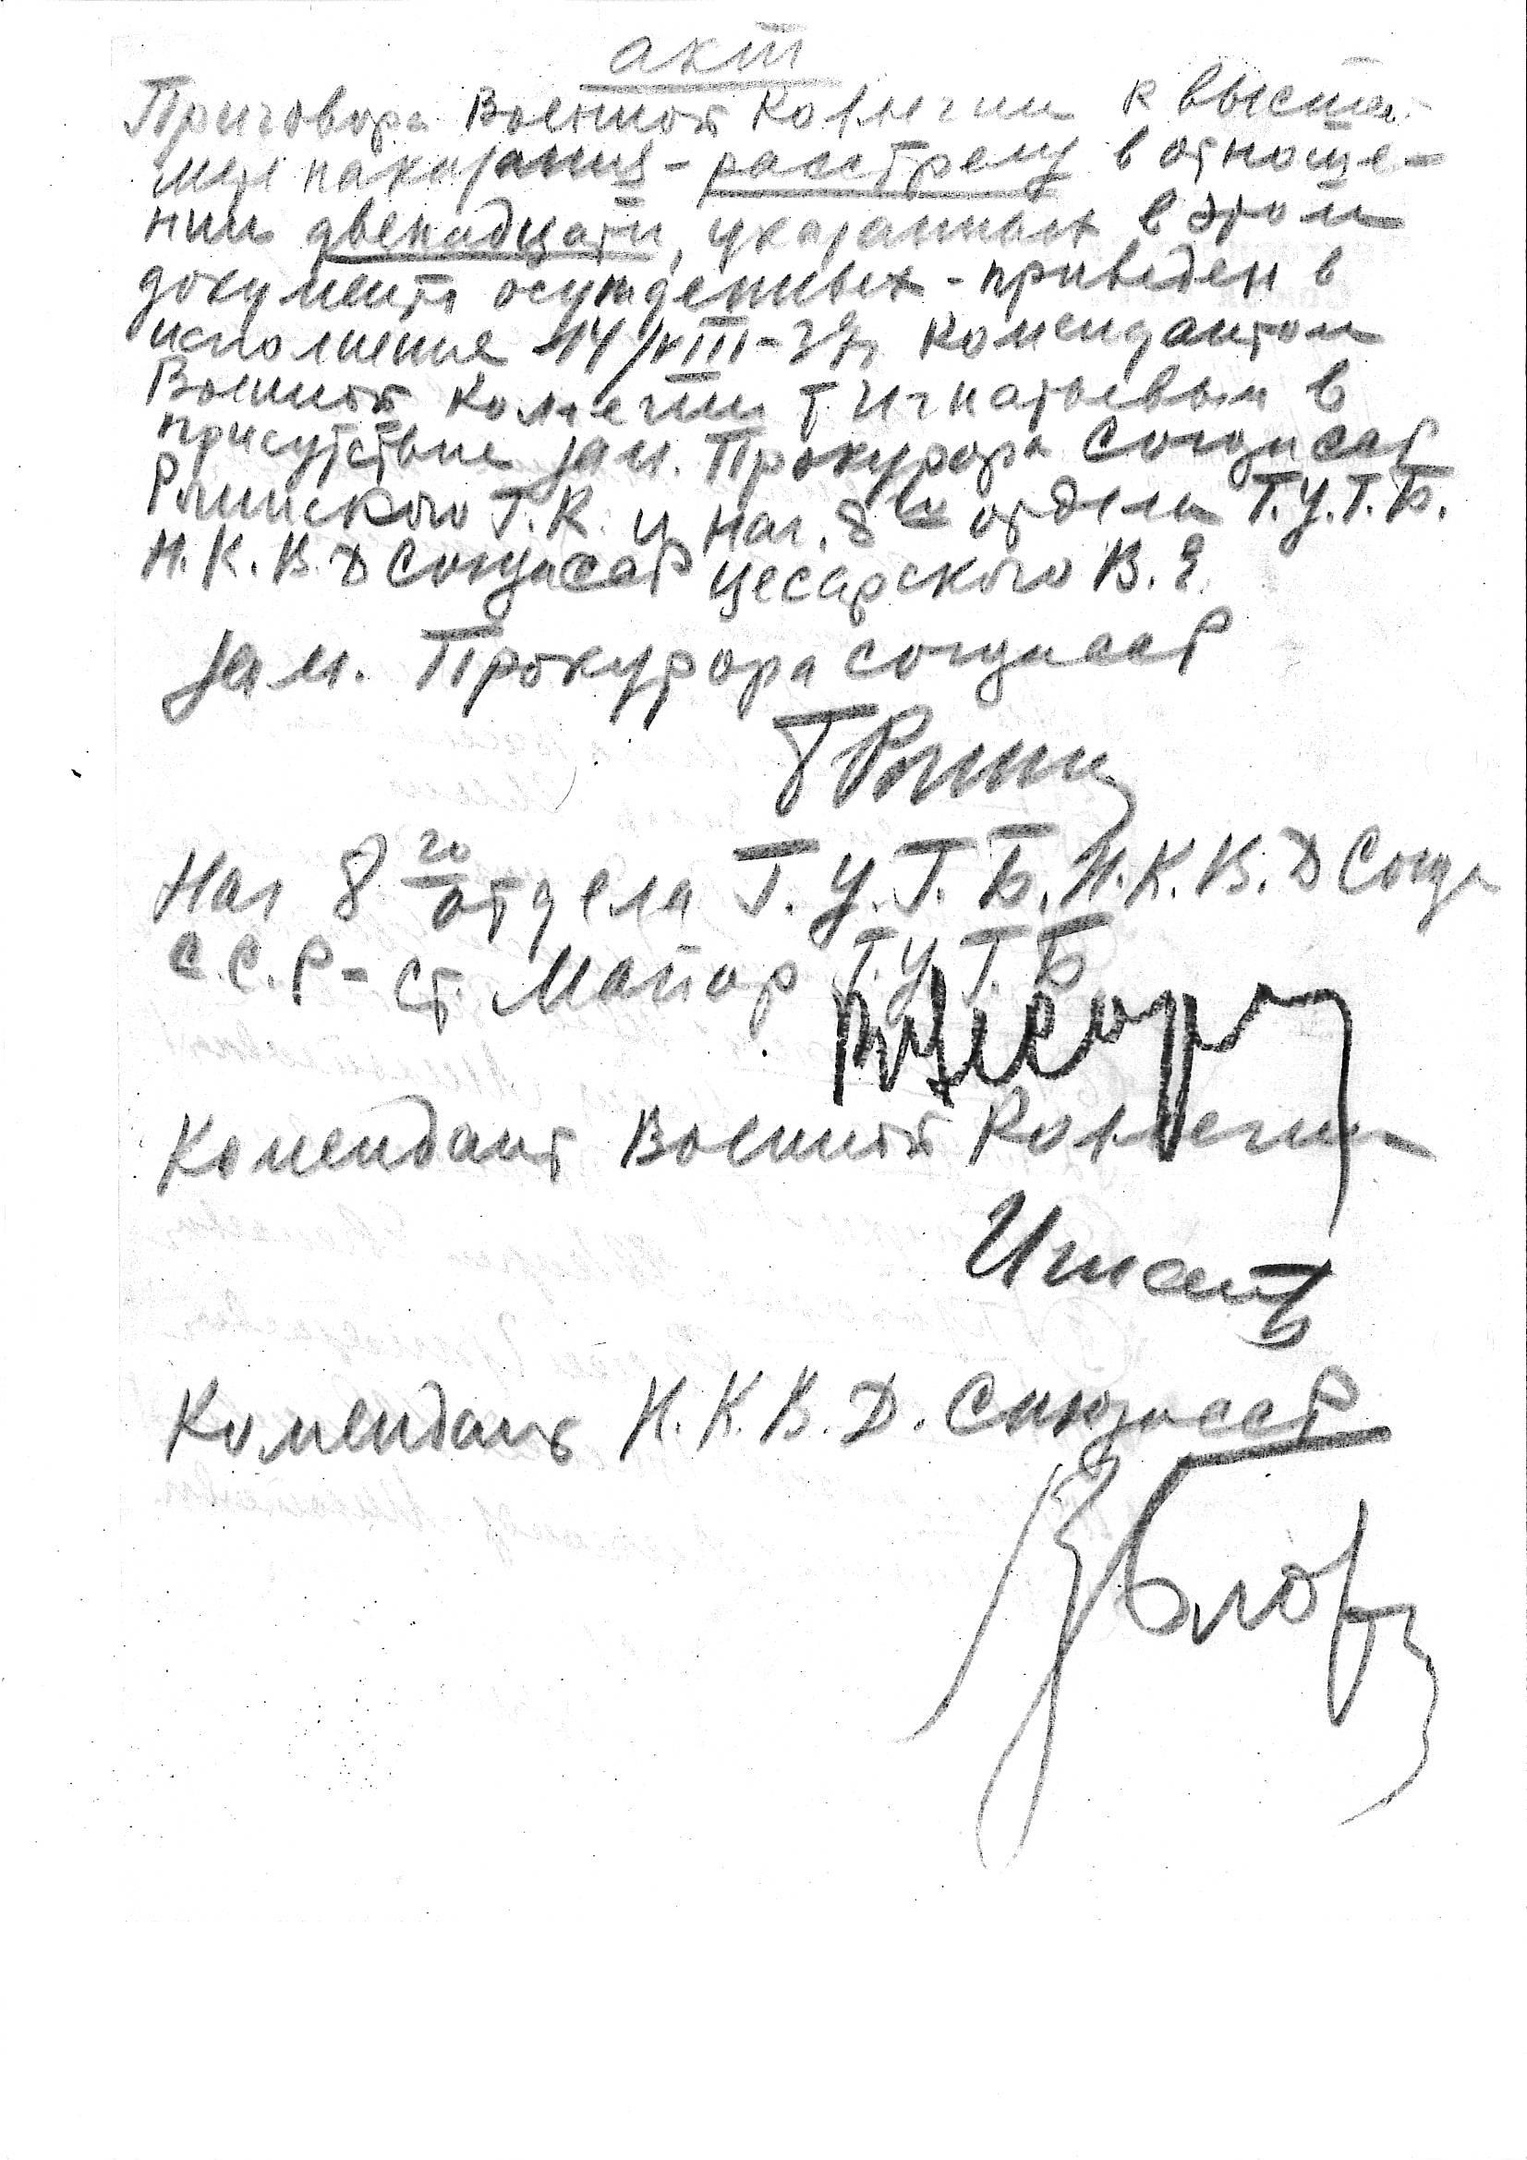 акт
Приговора Военной Коллегии к высшей
мере наказания - расстрелу в отноше-
нии двенадцати, указанных в этом
документе осужденных - приведен в
исполнение 14/VIII-37г. Комендантом
Военной Коллегии т. Игнатьевым в
присутствие зам. Прокурора СоюзаССР
Рогинского Г.К. и нач. 8го отдела Г.У.Г.Б.
Н.К.В.Д СоюзаССР Цесарского В.Е.
Зам. Прокурора союзаССР
ГРогин
Нач 8го отдела Г.У.Г.Б.Н.К.В.Д Союза
С.С.Р - ст. Майор Г.У.Г.Б
ВЦесар
Комендант Военной Коллегии
Игнать
Комендант Н.К.В.Д. СоюзаССР
Блох